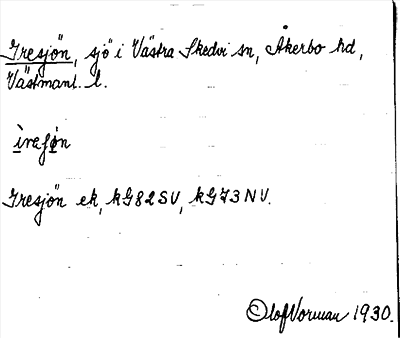 Iresjön, sjö i Västra Skedvi sn, Åkerbo hd,
Västmanl. l.
ìreʃøn
Iresjön ek, kG82SV, kG73NV.
Olof Vorman 1930.